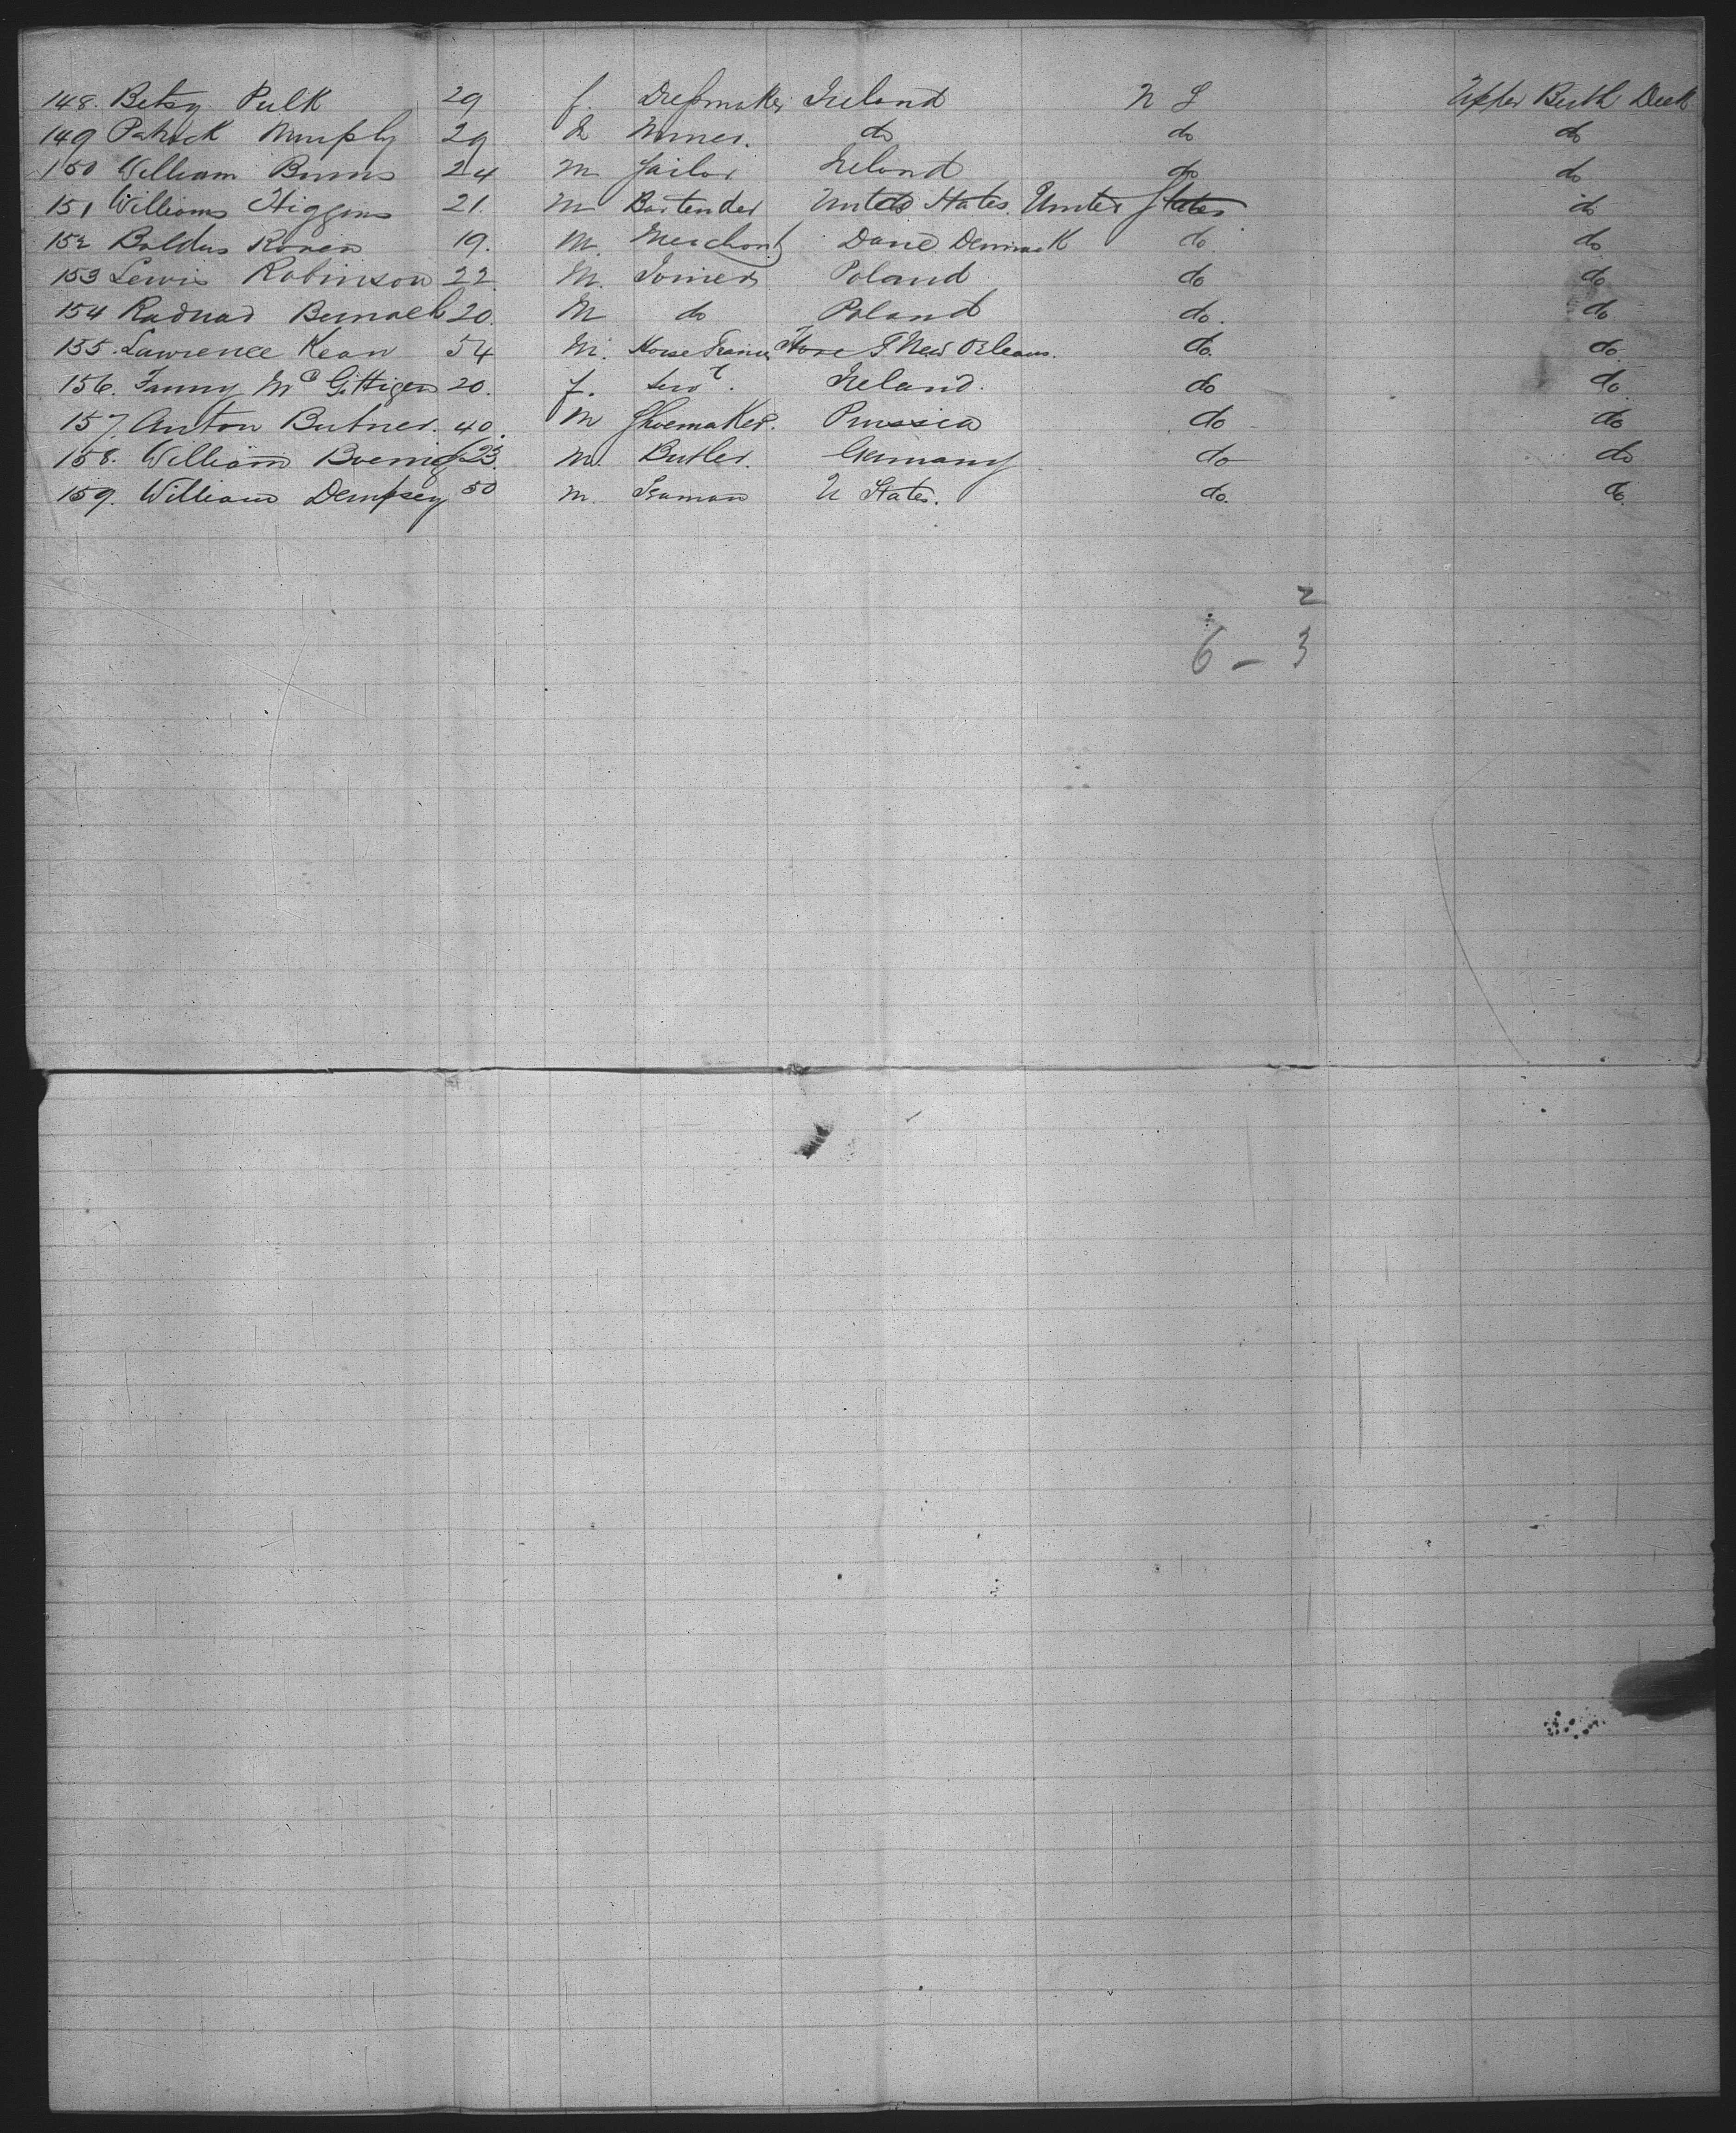 148. Betsy Pulk 29 f. Dressmaker Ireland U S Upper Berth Deck
149 Patrick Murphy 29 M Miner. do do do
150 William Burns 24 M Tailor Ireland do do
151 Williams Higgins 21. M Bartender United States United States do
152 19. M. Merchant Dane Denmark do do
153 Lewis Robinson 22 M. Joiner Poland do do
154 20. M do Poland do. do
155. Lawrence Kean 54 M. Horse Trainer New Orleans. do. do
156. Fanny McGittigan 20. f. Servt. Ireland. do do
157. Anton Butner. 40. M Shoemaker. Prussia do do
158. William 23. M. Butler. Germany do do
159. William Dempsey 50 M. Seaman U States. do. do.
2
6 - 3